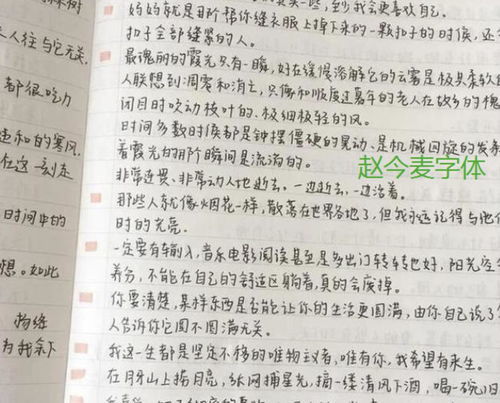 人往往与它无关,
都很吃力
和的寒风,
在这一刻在
时间中的
想。如此
妈妈就是用阶帮你缝衣服上掉下来的一颗扣子的时候,还
扣子全部缝紧的人。
最瑰丽的霞光只有一瞬,好在缓慢溶解它的云雾是极其柔软
人联想到凋零和消亡,只像和顺度过暮年的老人在故乡的槐
闭目时吹动枝叶的、极细极轻的风。
时间多数时候都是钟摆僵硬的晃动、是机械回旋的发条
着霞光的用阶瞬间是流淌的。
赵今麦字体
非常连贯、非常动人地逝去。一边逝去,一边活着。
那些人就像烟花一样,散落在世界各地了,但我永远记得与他
时的光亮。
一定要有输入,音乐电影阅读甚至是多出门转转也好,阳光空
养分,不能在自己的舒适区躺着,真的会废掉。
你要清楚,某样东西是否能让你的生活更圆满,由你自己说了
人告诉你它圆不圆满无关。
我这一生都是坚定不移的唯物主义者,唯有你,我希望有来生。
在月牙山上捞月亮,纵网捕星光,摘一缕清风下酒,喝一碗